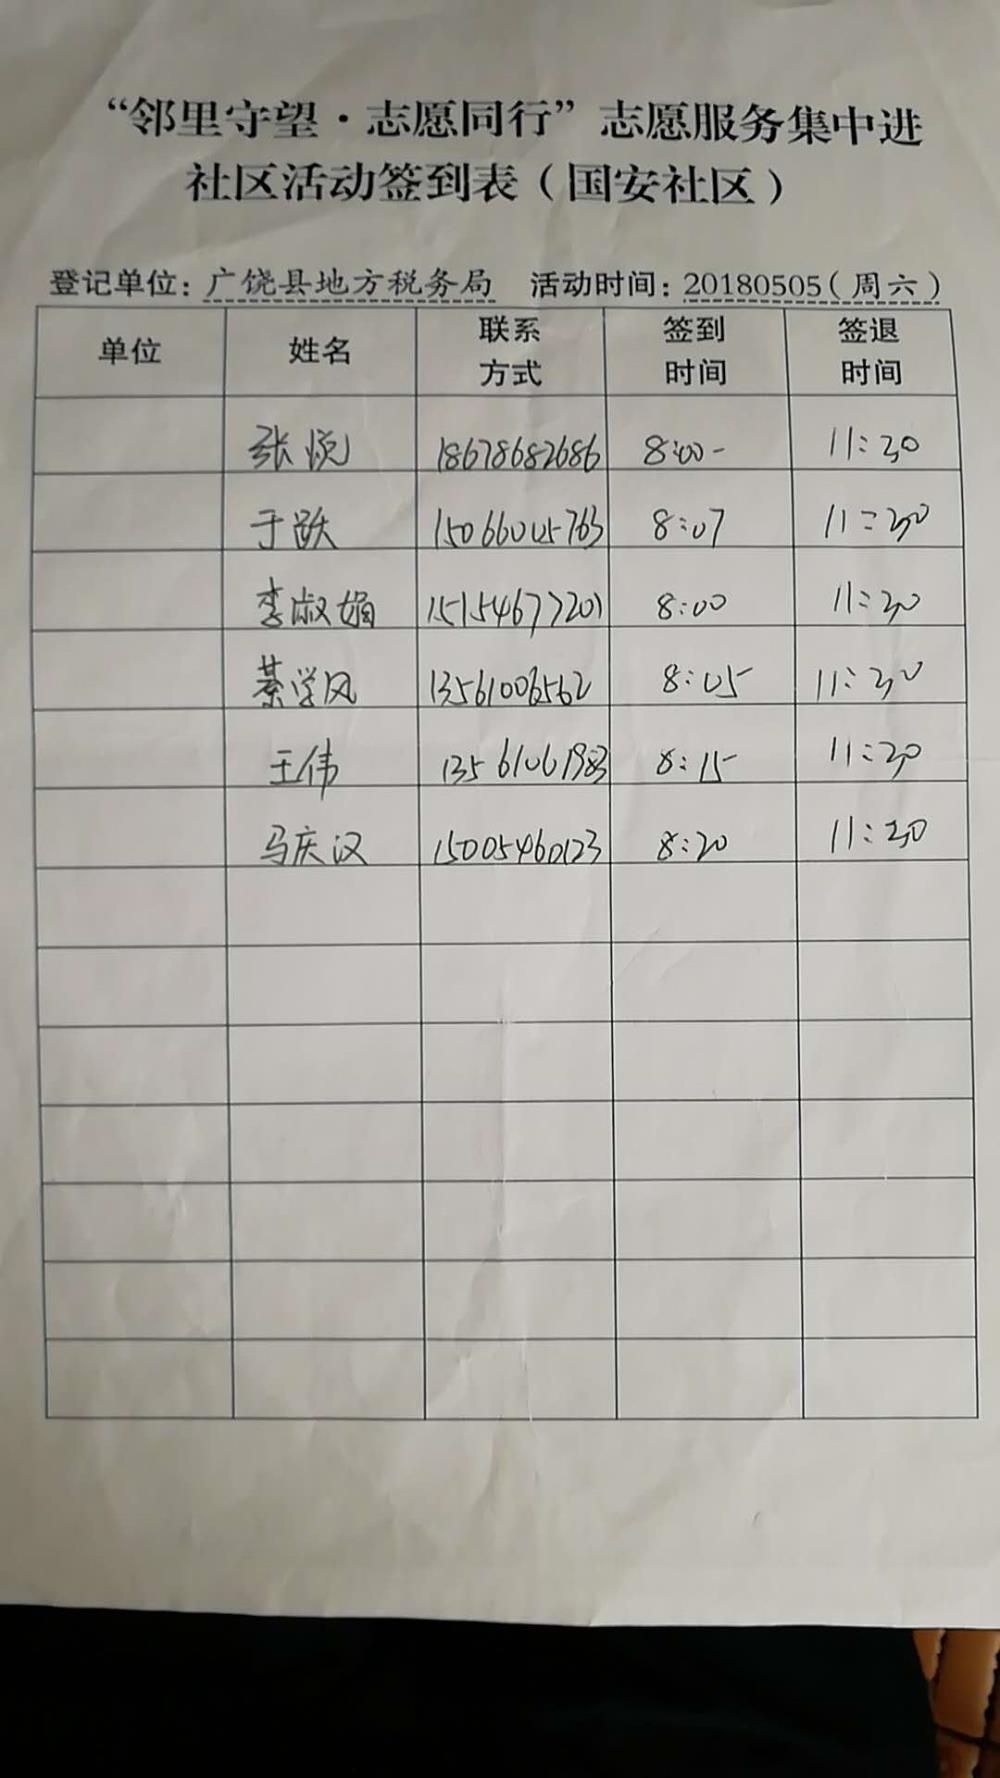 “邻里守望·志愿同行”志愿服务集中进
社区活动签到表（国安社区）
登记单位：广饶县地方税务局 活动时间：20180505（周六）
单位 姓名 联系方式 签到时间 签退时间
张悦 18678682686 8:00- 11:30
于跃 15066005763 8:07 11:30
李淑娟 15154677201 8:00 11:30
綦学风 13561006562 8:05 11:30
王伟 13561061983 8:15 11:30
马庆汉 15005460123 8:20 11:30